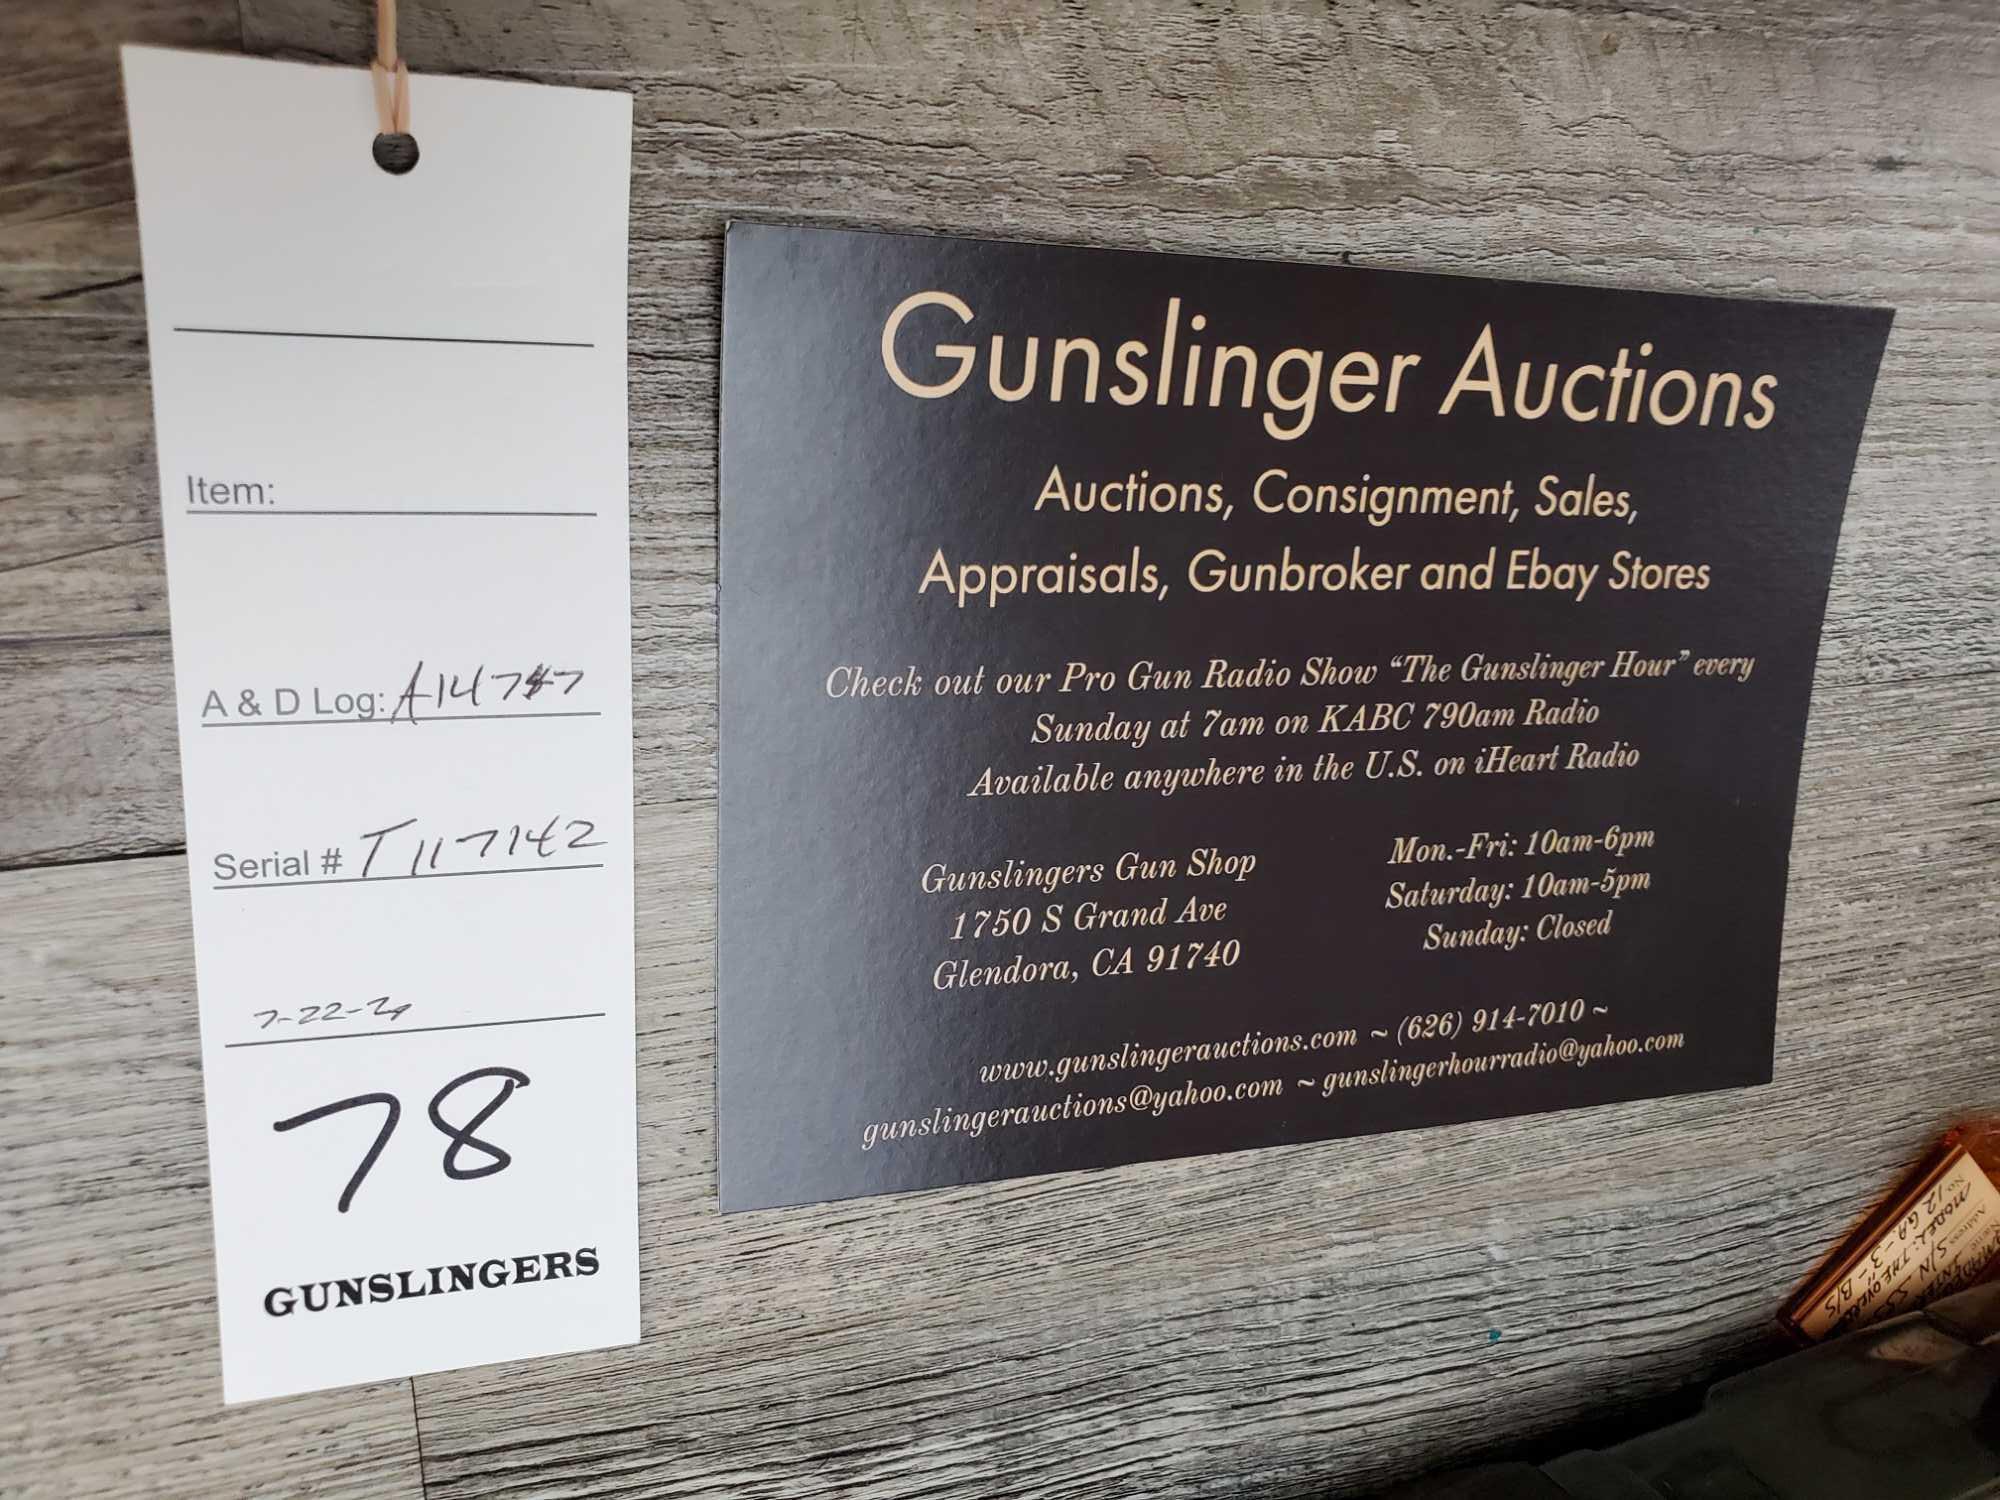 Item:
A & D Log: A14787
Serial # T117142
7-22-24
78
GUNSLINGERS
Gunslinger Auctions
Auctions, Consignment, Sales,
Appraisals, Gunbroker and Ebay Stores
Check out our Pro Gun Radio Show “The Gunslinger Hour” every
Sunday at 7am on KABC 790am Radio
Available anywhere in the U.S. on iHeart Radio
Gunslingers Gun Shop
1750 S Grand Ave
Glendora, CA 91740
Mon.-Fri: 10am-6pm
Saturday: 10am-5pm
Sunday: Closed
www.gunslingerauctions.com ~ (626) 914-7010 ~
gunslingerauctions@yahoo.com ~ gunslingerhourradio@yahoo.com
No. 12 GA. - 3" - B/S
MODEL: THE
S/N